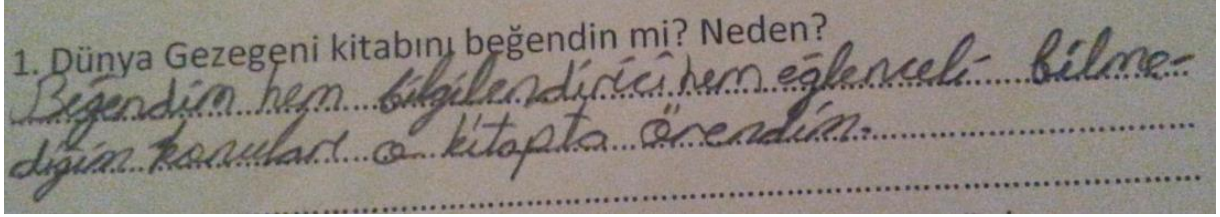 1. Dünya Gezegeni kitabını beğendin mi? Neden?
Beğendim hem bilgilendirici hem eğlenceli bilme-
diğim konuları o kitapta örendim.